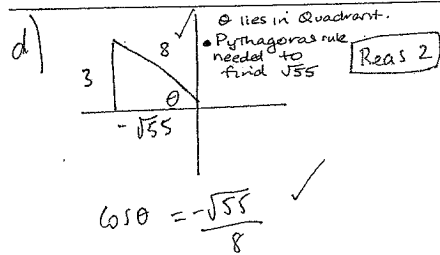 d)
θ lies in Quadrant.
• Pythagoras rule
needed to
find √55
Reas 2
8
3
θ
-√55
cosθ = -√55
8